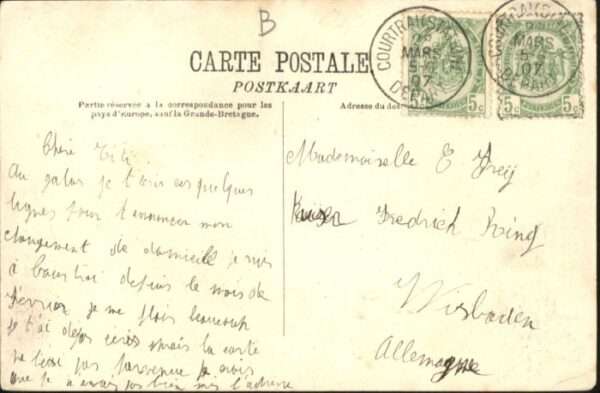 B
CARTE POSTALE
POSTKAART
Partie réservée à la correspondance pour les
pays d'europe, sauf la Grande-Bretagne.
Adresse du des
COURTRAI (STATION)
MARS
5-
07
DEPART
5c
COURTRAI (STATION)
MARS
5-
07
DEPART
5c 5c
Chère
Au galop je t'écris ces quelques
lignes pour t'annoncer mon
changement de domicile je suis
à Courtrai depuis le mois de
février je me plais beaucoup
je t'ai déjà écris mais la carte
ne t'est pas parvenue je crois
que je n'avais pas bien mis l'adresse
Mademoiselle E
Kaiser Fredrich Ring
Wisbaden
Allemagne